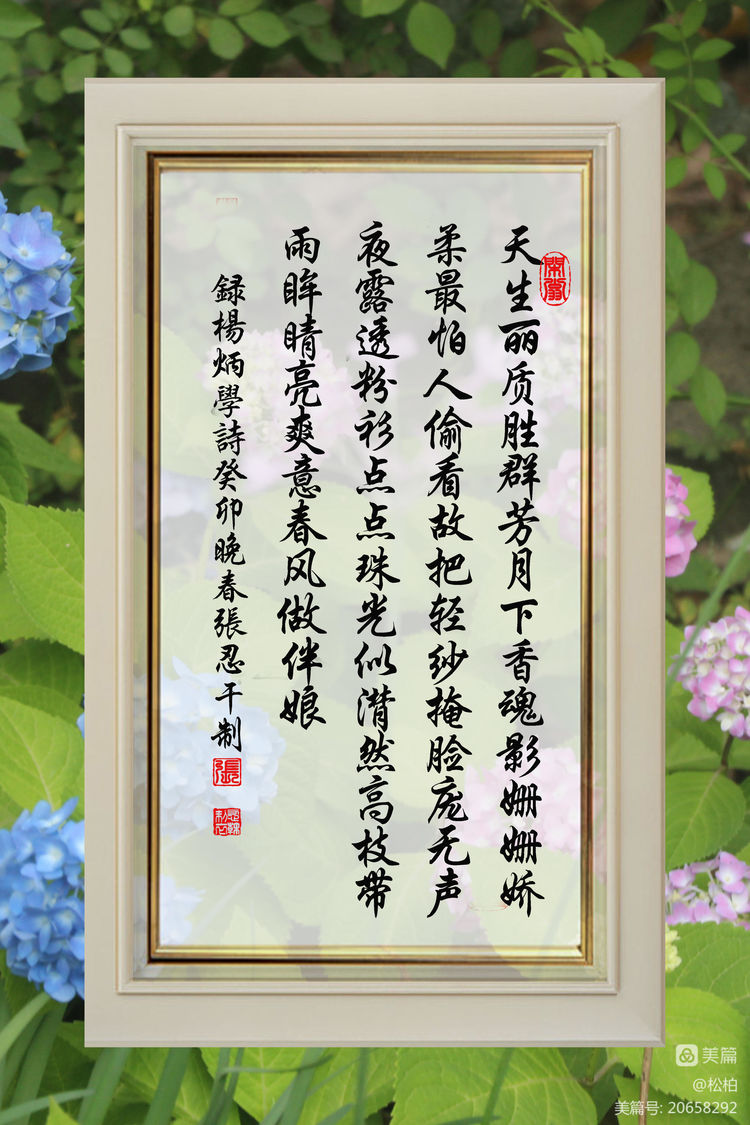 天生丽质胜群芳月下香魂影姗姗娇
柔最怕人偷看故把轻纱掩脸庞无声
夜露透粉衫点点珠光似潸然高枝带
雨眸晴亮爽意春风做伴娘
録楊炳學詩癸卯晚春張忍干制
張
美篇
@松柏
美篇号: 20658292